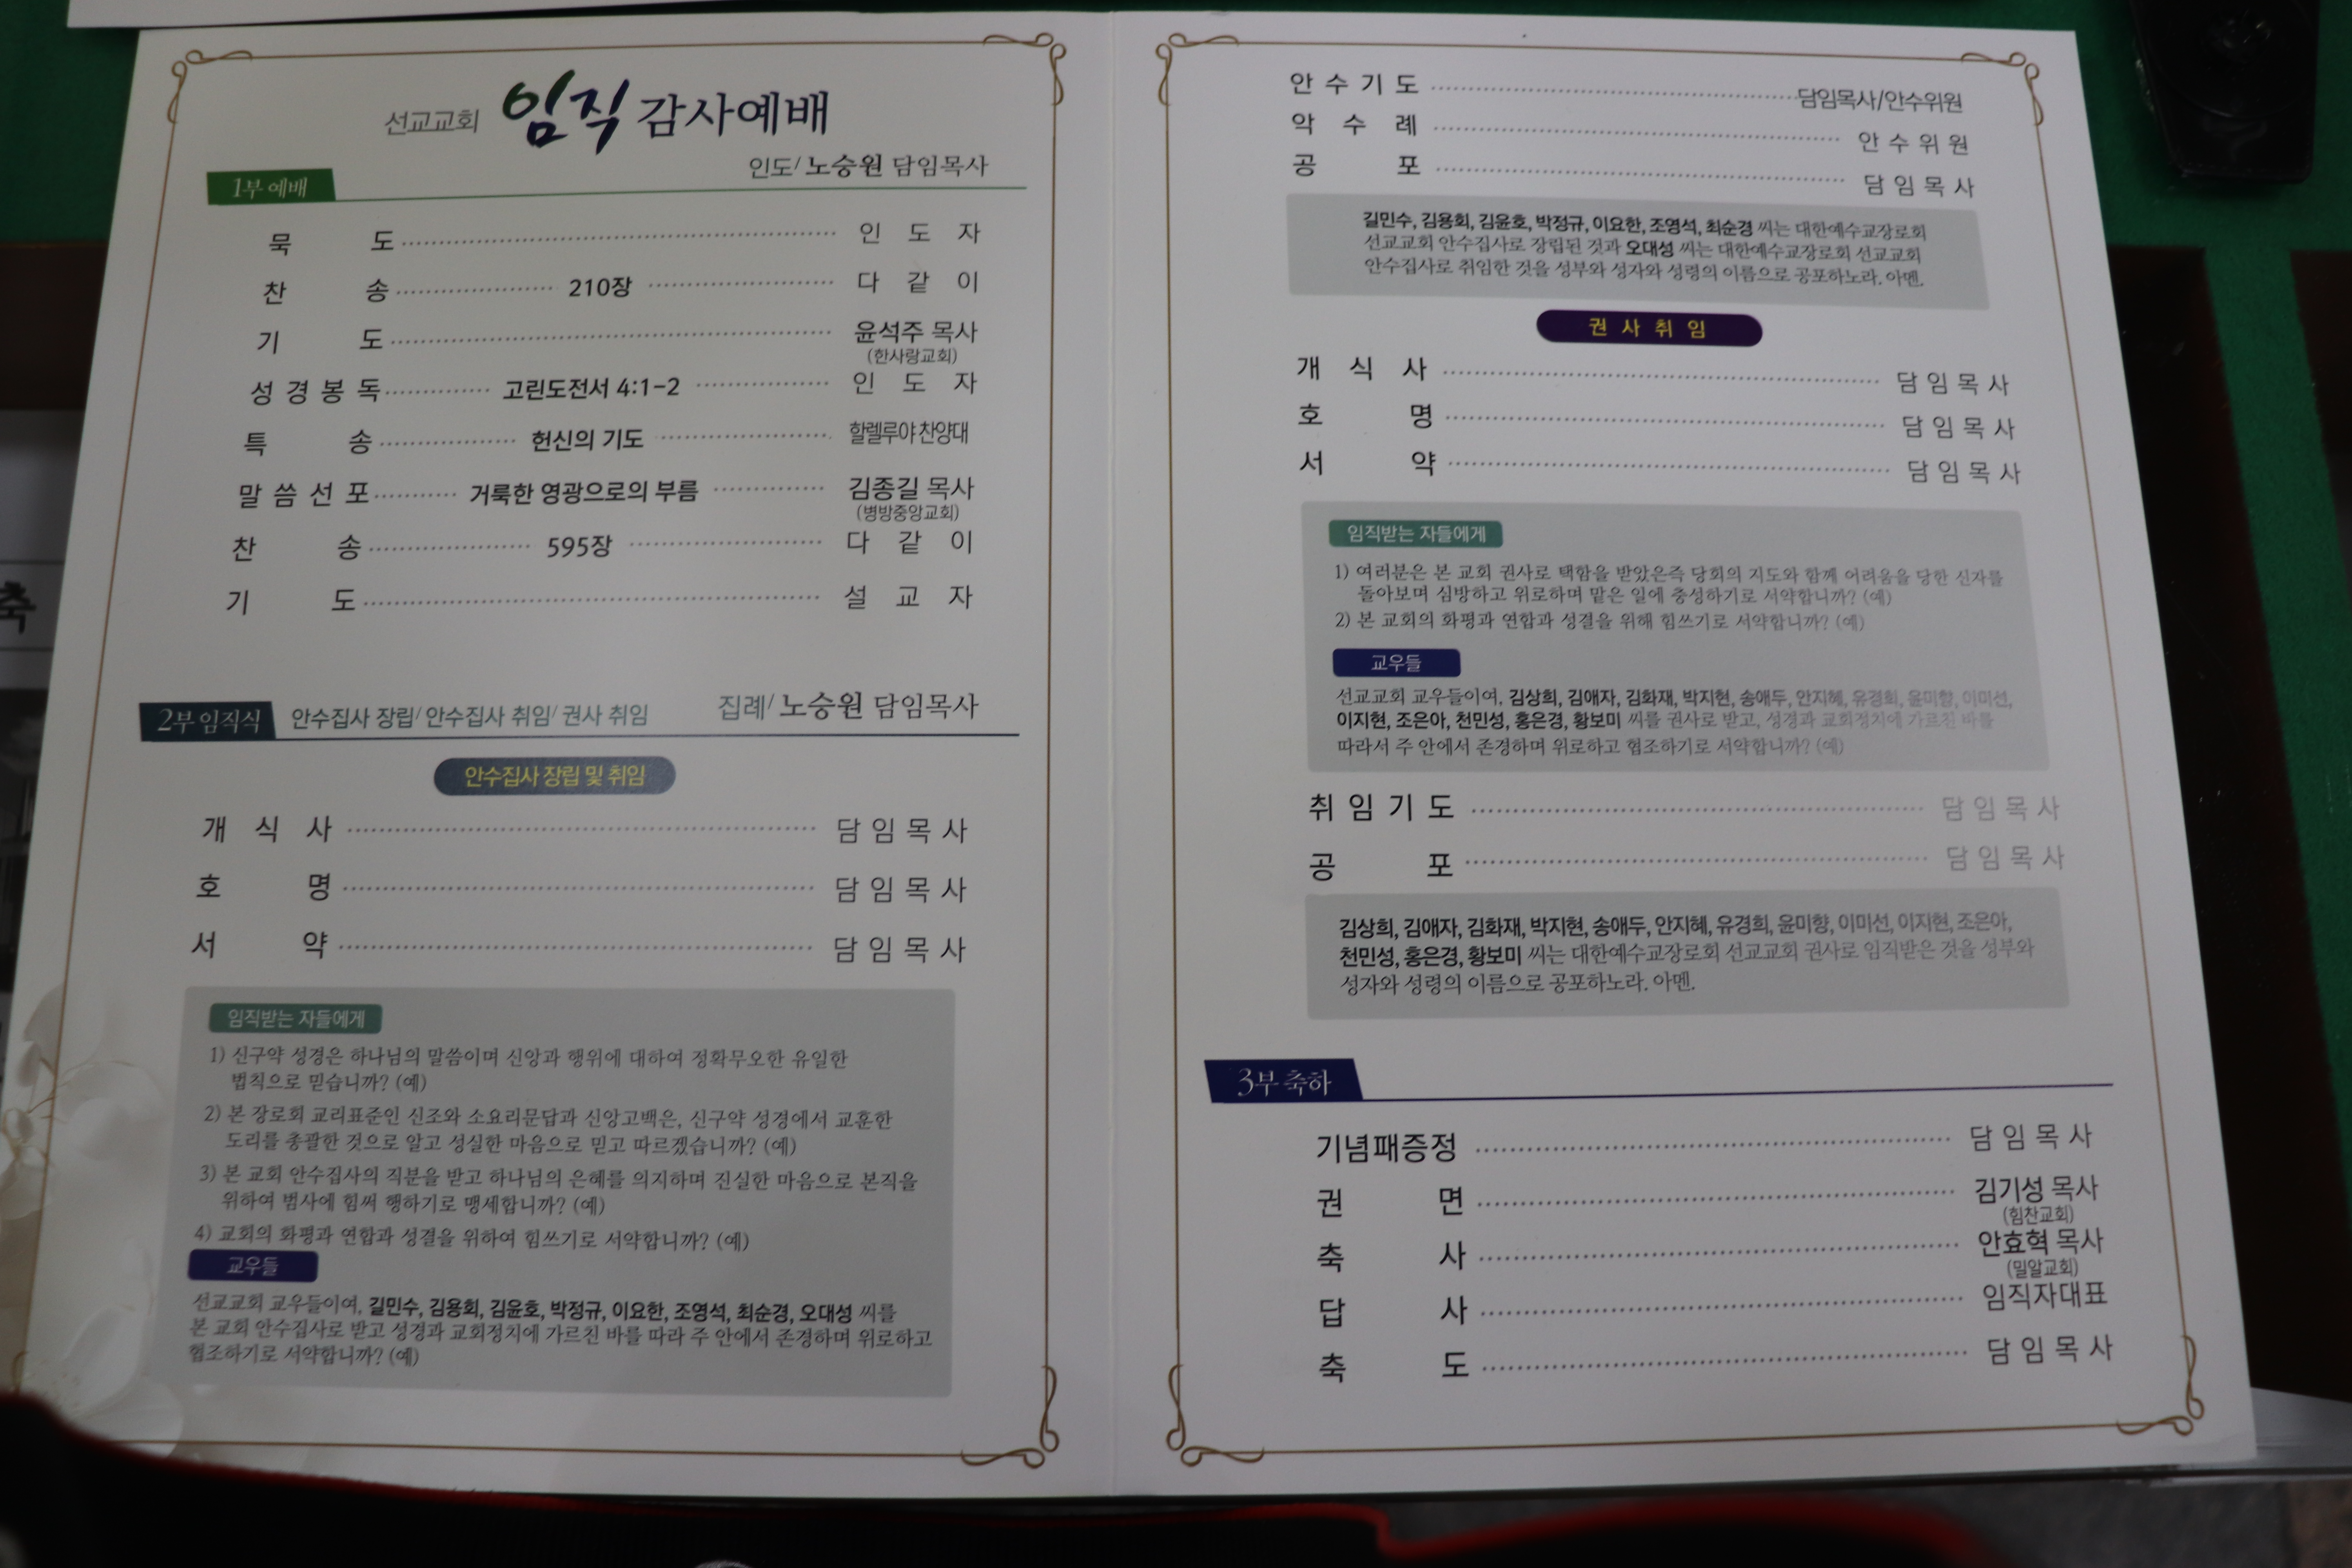 선교교회 임직 감사예배
인도/ 노승원 담임목사
1부 예배
묵 도 인 도 자
찬 송 210장 다 같 이
기 도 윤석주 목사
(한사랑교회)
성 경 봉 독 고린도전서 4:1-2 인 도 자
특 송 헌신의 기도 할렐루야 찬양대
말 씀 선 포 거룩한 영광으로의 부름 김종길 목사
(병방중앙교회)
찬 송 595장 다 같 이
기 도 설 교 자
2부 임직식 안수집사 장립/ 안수집사 취임/ 권사 취임 집례/ 노승원 담임목사
안수집사 장립 및 취임
개 식 사 담 임 목 사
호 명 담 임 목 사
서 약 담 임 목 사
임직받는 자들에게
1) 신구약 성경은 하나님의 말씀이며 신앙과 행위에 대하여 정확무오한 유일한
법칙으로 믿습니까? (예)
2) 본 장로회 교리표준인 신조와 소요리문답과 신앙고백은, 신구약 성경에서 교훈한
도리를 총괄한 것으로 알고 성실한 마음으로 믿고 따르겠습니까? (예)
3) 본 교회 안수집사의 직분을 받고 하나님의 은혜를 의지하며 진실한 마음으로 본직을
위하여 범사에 힘써 행하기로 맹세합니까? (예)
4) 교회의 화평과 연합과 성결을 위하여 힘쓰기로 서약합니까? (예)
교우들
선교교회 교우들이여, 길민수, 김용회, 김윤호, 박정규, 이요한, 조영석, 최순경, 오대성 씨를
본 교회 안수집사로 받고 성경과 교회정치에 가르친 바를 따라 주 안에서 존경하며 위로하고
협조하기로 서약합니까? (예)
안 수 기 도 담임목사/안수위원
악 수 례 안 수 위 원
공 포 담 임 목 사
길민수, 김용회, 김윤호, 박정규, 이요한, 조영석, 최순경 씨는 대한예수교장로회
선교교회 안수집사로 장립된 것과 오대성 씨는 대한예수교장로회 선교교회
안수집사로 취임한 것을 성부와 성자와 성령의 이름으로 공포하노라. 아멘.
권 사 취 임
개 식 사 담 임 목 사
호 명 담 임 목 사
서 약 담 임 목 사
임직받는 자들에게
1) 여러분은 본 교회 권사로 택함을 받았은즉 당회의 지도와 함께 어려움을 당한 신자를
돌아보며 심방하고 위로하며 맡은 일에 충성하기로 서약합니까? (예)
2) 본 교회의 화평과 연합과 성결을 위해 힘쓰기로 서약합니까? (예)
교우들
선교교회 교우들이여, 김상희, 김애자, 김화재, 박지현, 송애두, 안지혜, 유경희, 윤미향, 이미선,
이지현, 조은아, 천민성, 홍은경, 황보미 씨를 권사로 받고, 성경과 교회정치에 가르친 바를
따라서 주 안에서 존경하며 위로하고 협조하기로 서약합니까? (예)
취 임 기 도 담 임 목 사
공 포 담 임 목 사
김상희, 김애자, 김화재, 박지현, 송애두, 안지혜, 유경희, 윤미향, 이미선, 이지현, 조은아,
천민성, 홍은경, 황보미 씨는 대한예수교장로회 선교교회 권사로 임직받은 것을 성부와
성자와 성령의 이름으로 공포하노라. 아멘.
3부 축하
기념패증정 담 임 목 사
권 면 김기성 목사
(힘찬교회)
축 사 안효혁 목사
(밀알교회)
답 사 임직자대표
축 도 담 임 목 사
축